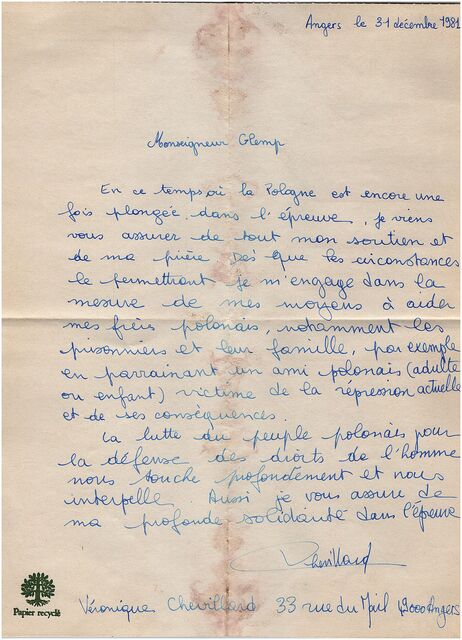 Angers le 31 décembre 1981
Monseigneur Glemp
En ce temps où la Pologne est encore une
fois plongée dans l'épreuve, je viens
vous assurer de tout mon soutien et
de ma prière Dès que les circonstances
le permettront je m'engage dans la
mesure de mes moyens à aider
mes frères polonais, notamment les
prisonniers et leur famille, par exemple
en parrainant un ami polonais (adulte
ou enfant) victime de la répression actuelle
et de ses conséquences.
La lutte du peuple polonais pour
la défense des droits de l'homme
nous touche profondément et nous
interpelle. Aussi je vous assure de
ma profonde solidarité dans l'épreuve
Chevillard
Papier recyclé
Véronique Chevillard 33 rue du Mail 49000 Angers